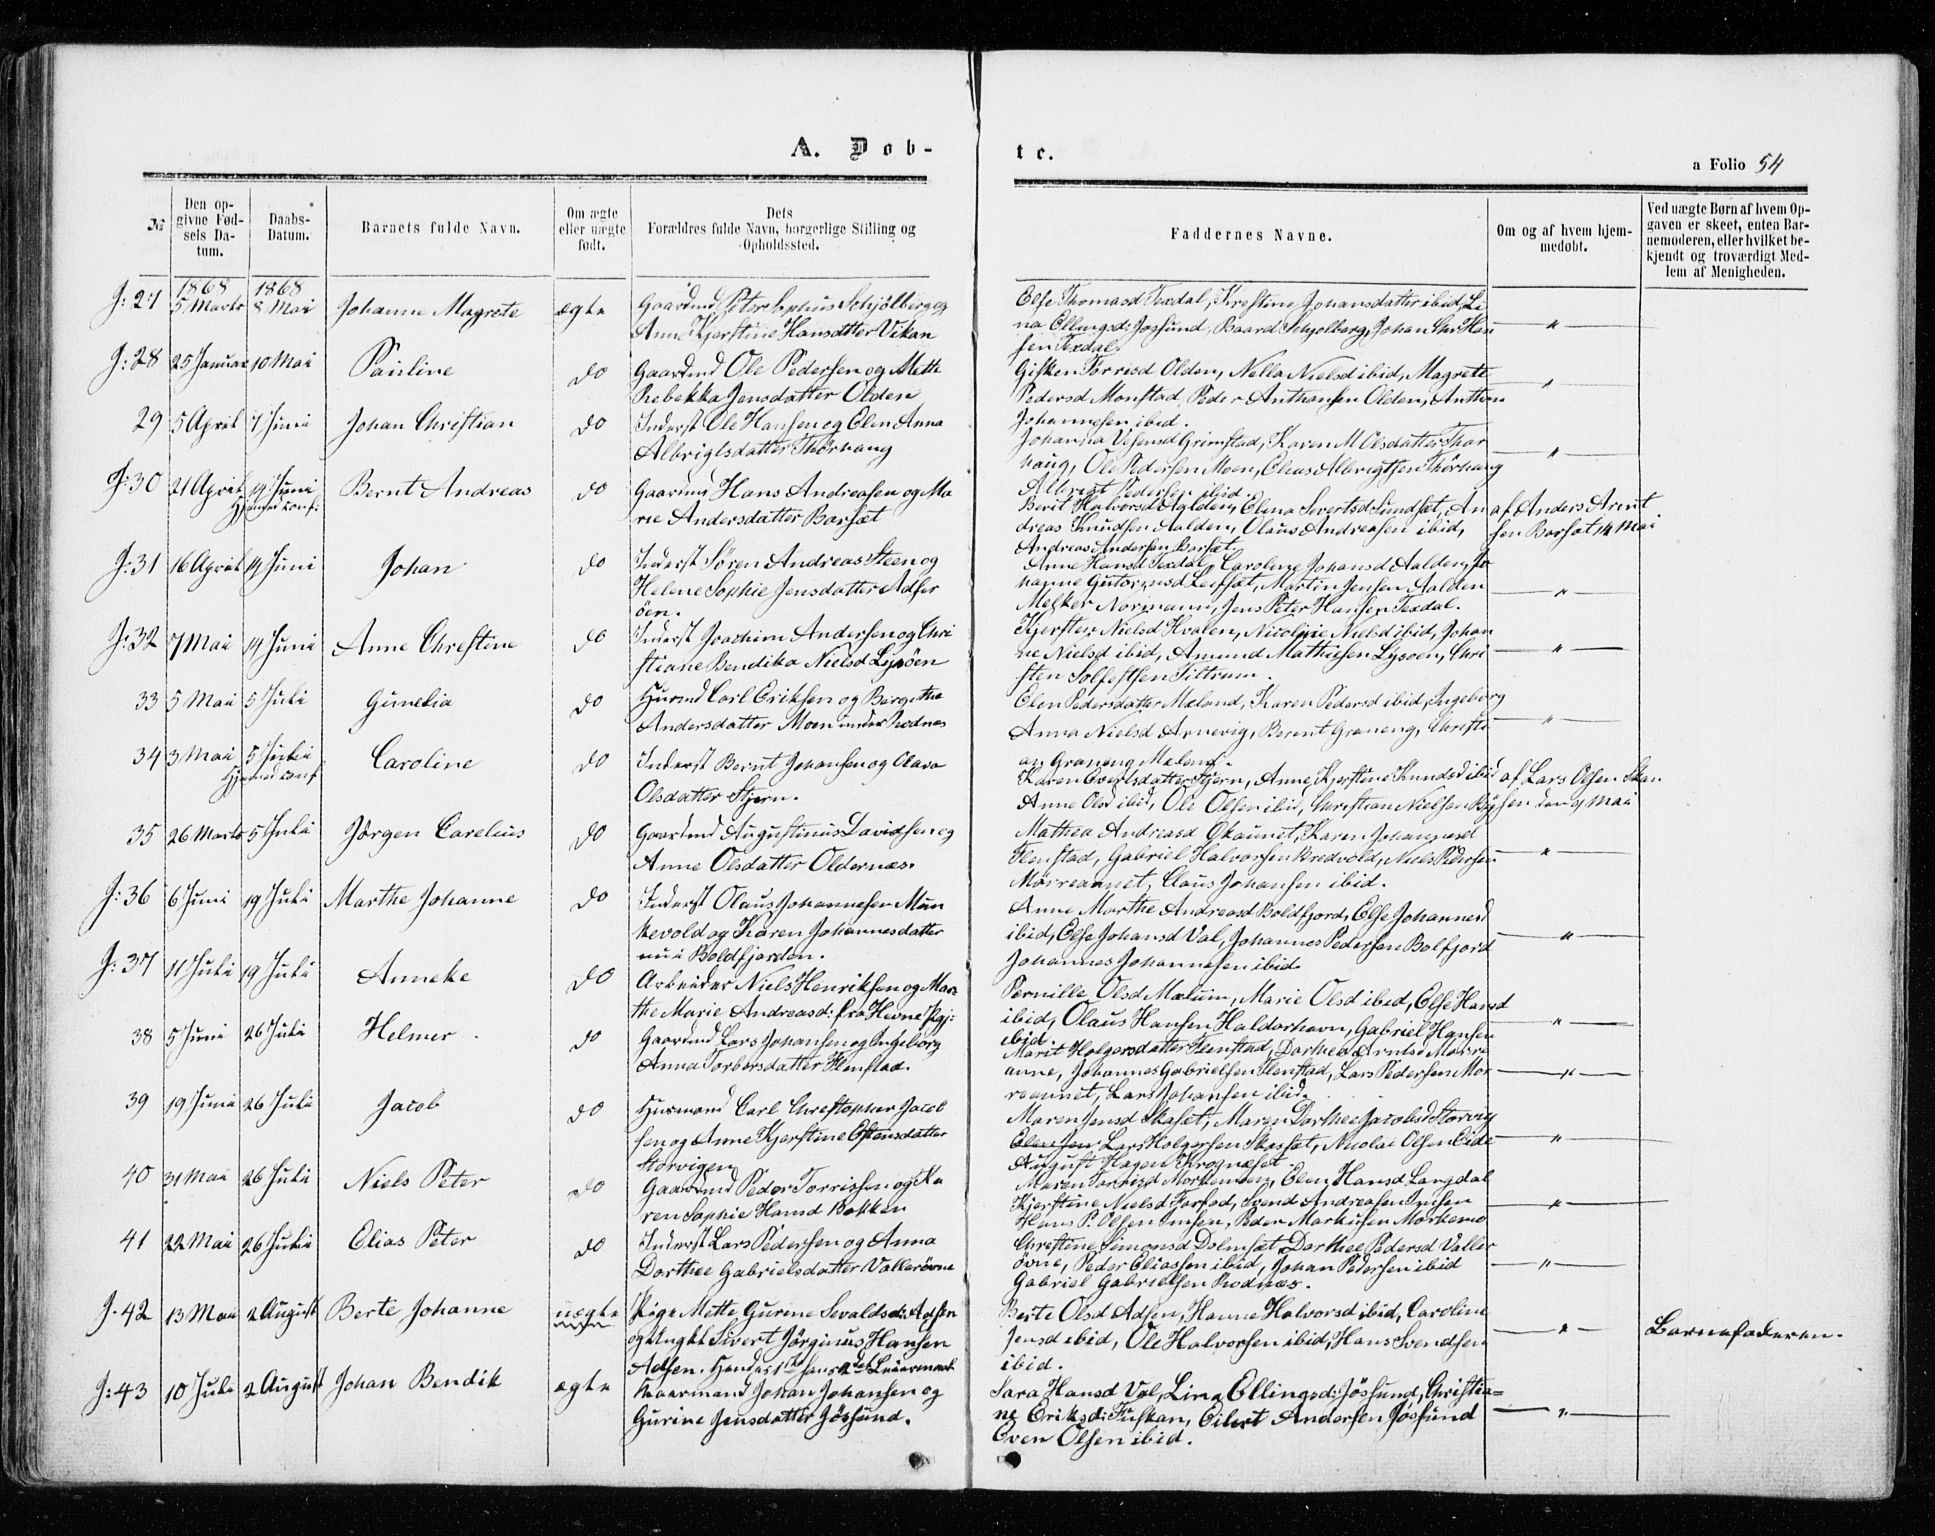 A. Døb-
te.
a Folio 54
№
Den op-
givne Fød-
sels Da-
tum.
Daabs-
Datum.
Barnets fulde Navn.
Om ægte
eller uægte
født.
Dets
Forældres fulde Navn, borgerlige Stilling og
Opholdssted.
Faddernes Navne.
Om og af hvem hjem-
medøbt.
Ved uægte Børn af hvem Op-
gaven er skeet, enten Bar-
nemoderen, eller hvilket be-
kjendt og troværdigt Med-
lem af Menigheden.
1868 1868
J: 27 5 Marts 8 Mai Johanne Magrete ægte
Anne Kjerstine Hansdatter Vikan
Else Thomasd Texdal, Krestine Johansdatter ibid, Li
na Ellingsd: Jøssund, Baard Schjølberg, Johan Chr Han
sen Texdal
J: 28 25 Januar 10 Mai Pauline do Gaardmd Ole Pedersen og Mette
Rebekka Jensdatter Olden
Gisken Torrisd Olden, Nella Nielsd ibid, Magrete
Pedersd Monstad, Peder Anthonsen Olden, Anthon
Johannesen ibid.
29 5 April 7 Juni Johan Christian do Inderst Ole Hansen og Elen Anna
Albrigtsdatter Thørhaug
Grimstad, Karen M Olsdatter Thør
haug, Ole Pedersen Moen, Elias Albrigtsen Thørhaug
Albrigt Pedersen ibid.
J: 30 21 April 14 Juni Bernt Andreas do Gaardmd Hans Andreasen og Ma
Hjemmed Conf:
rie Andersdatter Borsæt
Berit Halvorsd Aalden, Elena Sivertsd Sundsæt, An
dreas Knudsen Aalden, Olaus Andreasen ibid,
Andreas Andersen Borsæt.
af Anders Arnt
sen Borsæt 14 Mai
J: 31 16 April 14 Juni Johan do Inderst Søren Andreas Steen og
Helene Sophie Jensdatter Adser
øen.
Anne Hansd Texdal, Caroline Johansd Aalden, Jo
hanne Leksæt, Martin Jensen Aalden
Melker Normann, Jens Peter Hansen Texdal.
J: 32 7 Mai 14 Juni Anne Chrestine do Inderst Joachim Andersen og Chri
stiane Bendika Nielsd Lysøen
Kjersten Nielsd Hvalen, Nicoline Nielsd ibid, Johan
ne Nielsd ibid, Amund Mathiesen Lysøen, Chri
sten Solfestsen Tiltrum.
33 5 Mai 5 Juli Gunelia do Husmd Carl Eriksen og Bergithe
Andersdatter Moen under Rodnæs
Elen Pedersdatter Mæland, Karen Pedersd ibid, Ingeborg
Anna Nielsd Arnevig, Bernt Graneng, Christi
an Graneng Mæland.
34 3 Mai 5 Julii Caroline do Inderst Bernt Johansen og Olava
Hjemmed Conf
Olsdatter Stjern.
Karen Evertsdatter Stjern, Anne Kjerstine Knudsd ibid
Anne Olsd ibid, Ole Olsen ibid, Christian Nielsen
af Lars Olsen
den 9 Mai
35 26 Marts 5 Juli Jørgen Carelius do Gaardmd Augustinus Davidsen og
Anne Olsdatter Oldernæs.
Mathea Andreasd Okaunet, Karen Johannesd
Flenstad, Gabriel Halvorsen Bredvold, Niels Pedersen
Morreaunet, Claus Johansen ibid.
J: 36 6 Juni 19 Juli Marthe Johanne do Inderst Olaus Johannesen Mun
kevold og Karen Johannesdatter
nu i Boldfjorden.
Anne Marthe Andreasd Boldfjord, Else Johannesd
ibid, Else Johansd Val, Johannes Pedersen Bolfjord
Johannes Johannesen ibid.
J: 37 11 Juli 19 Juli Anneke do Arbeider Niels Henriksen og Mar-
the Marie Andreasd: fra Hevne Pgj:
Pernille Olsd Mælum, Marie Olsd ibid, Else Hansd
ibid, Olaus Hansen Haldorhavn, Gabriel Hansen
ibid.
38 5 Juni 26 Juli Helmer do Gaardmd Lars Johansen og Ingeborg
Anna Torbersdatter Flenstad.
Marit Holgersdatter Flenstad, Dorthea Arntsd Morre
aune, Johannes Gabrielsen Flenstad, Lars Pedersen Mor
reaunet, Lars Johansen ibid.
39 19 Juni 26 Juli Jacob do Husmand Carl Christopher Jacob
sen og Anne Kjerstine Estensdatter
Storvigen
Maren Jensd Skaset, Maren Dorthea Jacobsd Storvig
Lars Holgersen Skaset, Nicolai Olsen Eide
August Hagen
40 31 Mai 26 Juli Niels Peter do Gaardmd Peder Torrissen og Ka
ren Sophie Hansd Bakken
Elen Hansd Langdal
Kjerstine Nielsd Svend Andreasen Imsen
Hans P. Olsen Imsen, Peder Markusen
41 22 Mai 26 Julii Elias Peter do Inderst Lars Pedersen og Anna
Dorthee Gabrielsdatter Vallerøvne
Chrestine Simonsd Dolmsæt, Dorthee Pedersd Valler
øvne, Peder Eliassen ibid, Johan Pedersen ibid
Gabriel Gabrielsen Rodnæs.
J. 42 13 Mai 2 August Berte Johanne uægte Pige Mette Gurine Sevaldsd: Adsen
og Ungkl Sivert Jørginus Hansen
Adsen. Hendes 1st hans 2det Leiermaal
Berte Olsd Adsen, Hanne Halvorsd ibid, Caroline
Jensd ibid, Ole Halvorsen ibid, Hans Svendsen
ibid.
Barnefaderen.
J: 43 10 Juli 2 August Johan Bendik ægte Kaarmand Johan Johansen og
Gurine Jensdatter Jøssund.
Sara Hansd Val, Lina Ellingsd: Jøssund, Christia-
ne Eriksd: Fuskan, Eilert Andersen Jøssund
Even Olsen ibid.